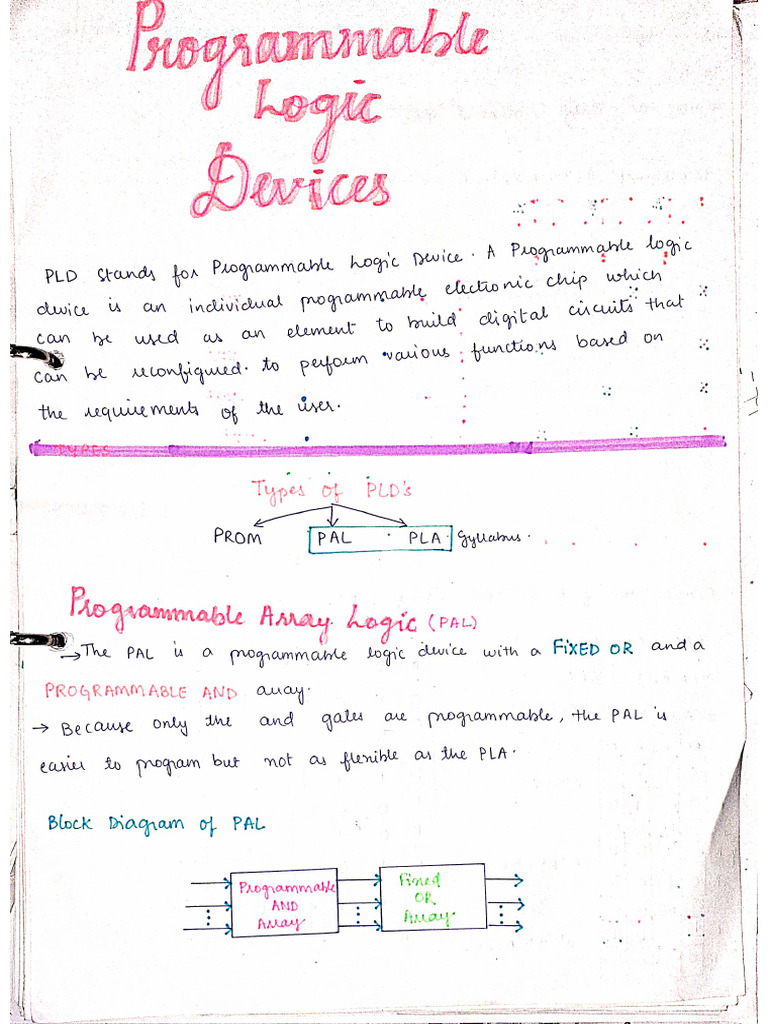 Programmable
Logic
Devices
PLD stands for Programmable Logic Device. A Programmable logic
device is an individual programmable electronic chip which
can be used as an element to build digital circuits that
can be reconfigured. to perform various functions based on
the requirements of the user.
TYPES
Types of PLD's
PROM PAL PLA. Syllabus.
Programmable Array Logic (PAL)
→The PAL is a programmable logic device with a FIXED OR and a
PROGRAMMABLE AND array.
→ Because only the and gates are programmable, the PAL is
easier to program but not as flexible as the PLA.
Block Diagram of PAL
Programmable
AND
Array
Fixed
OR
Array